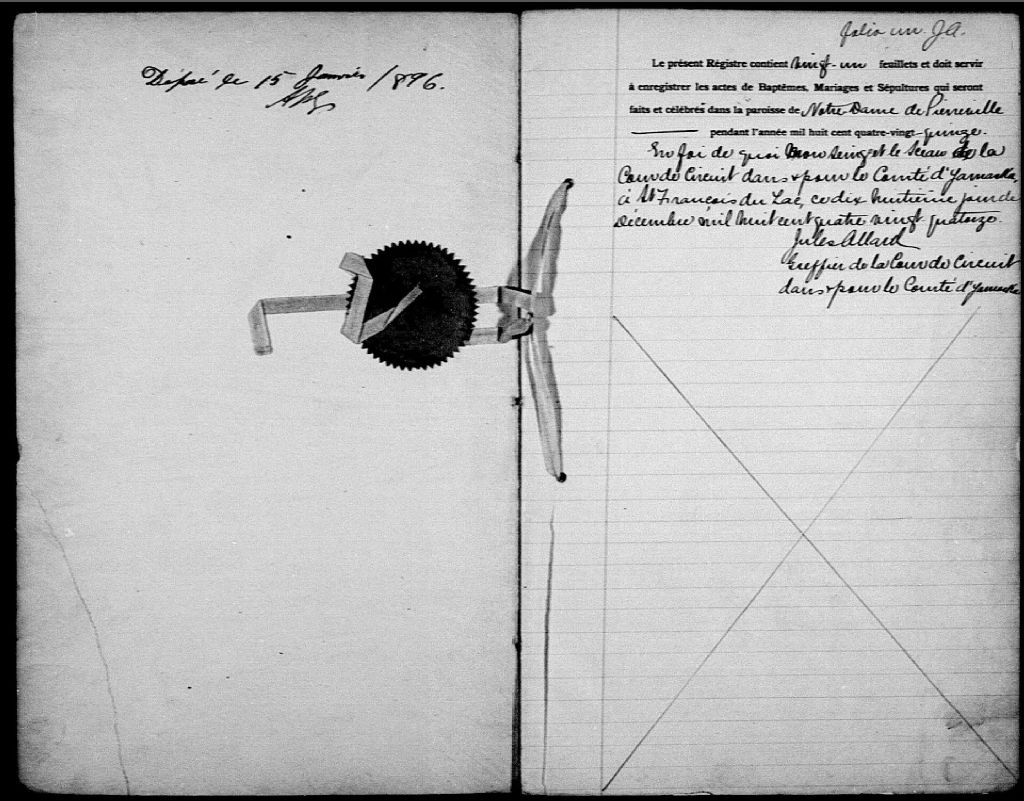 Déposé le 15 Janvier 1896.
folio un. JA.
Le présent Régistre contient vingt-un feuillets et doit servir
à enregistrer les actes de Baptêmes, Mariages et Sépultures qui seront
faits et célébrés dans la paroisse de Notre Dame de Pierreville
pendant l'année mil huit cent quatre-vingt-quinze.
En foi de quoi mon seing et le sceau de la
Cour de Circuit dans & pour le Comté d'Yamaska,
à St François du Lac, ce dix huitième jour de
Décembre mil huit cent quatre vingt quatorze.
Jules Allard
Greffier de la Cour de Circuit
dans & pour le Comté d'Yamaska